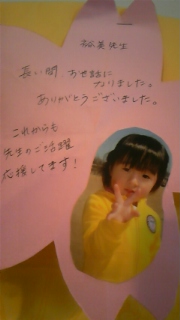 先生
長い間 お世話に
なりました。
ありがとうございました。
これからも
先生のご活躍
応援してます!